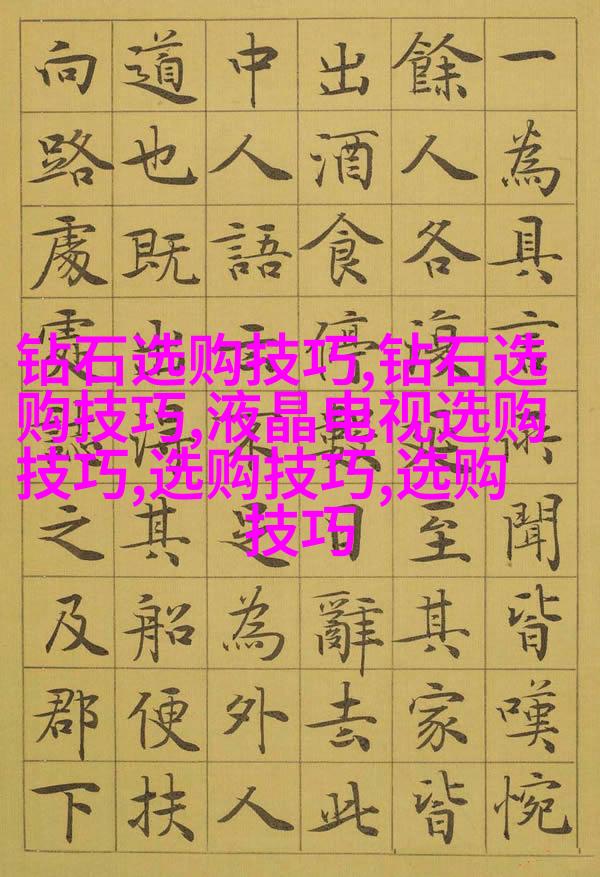 一為具言所聞皆嘆惋
餘人各復延至其家皆
出酒食停數日辭去此
中人語云不足為外人
道也既出得其船便扶
向路處處誌之及郡下
钻石选购技巧,钻石选
购技巧,液晶电视选购
技巧,选购技巧,选购
技巧